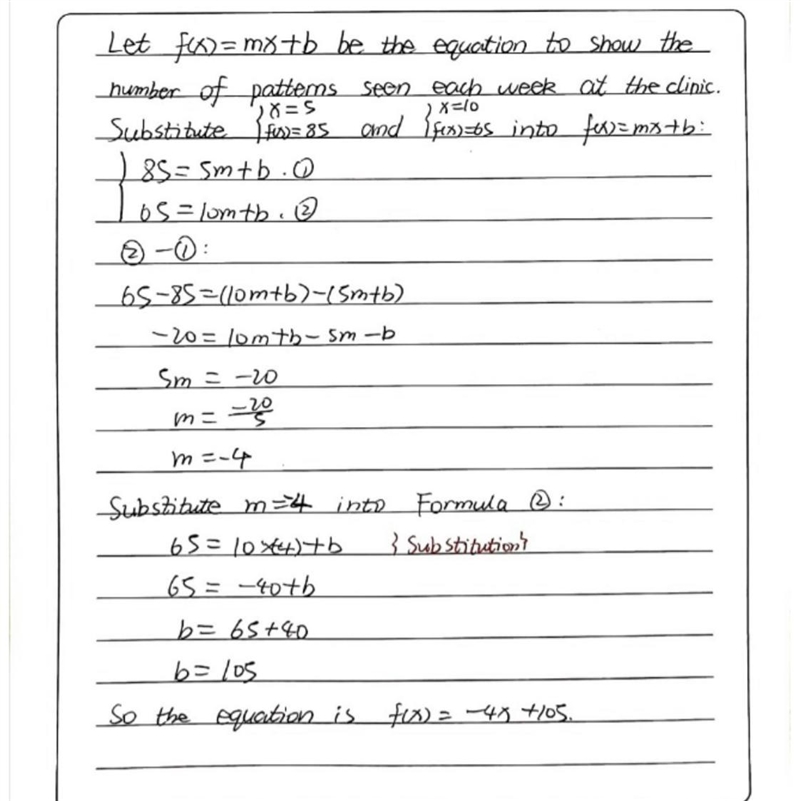 Let f(x)=mx+b be the equation to show the
number of patterns seen each week at the clinic.
Substitute {x=5 f(x)=85 and {x=10 f(x)=65 into f(x)=mx+b:
{85=5m+b.①
65=10m+b.②
②-①:
65-85=(10m+b)-(5m+b)
-20=10m+b-5m-b
5m=-20
m=-20/5
m=-4
Substitute m=-4 into Formula ②:
65=10×(-4)+b {Substitution}
65=-40+b
b=65+40
b=105
So the equation is f(x)=-4x+105.